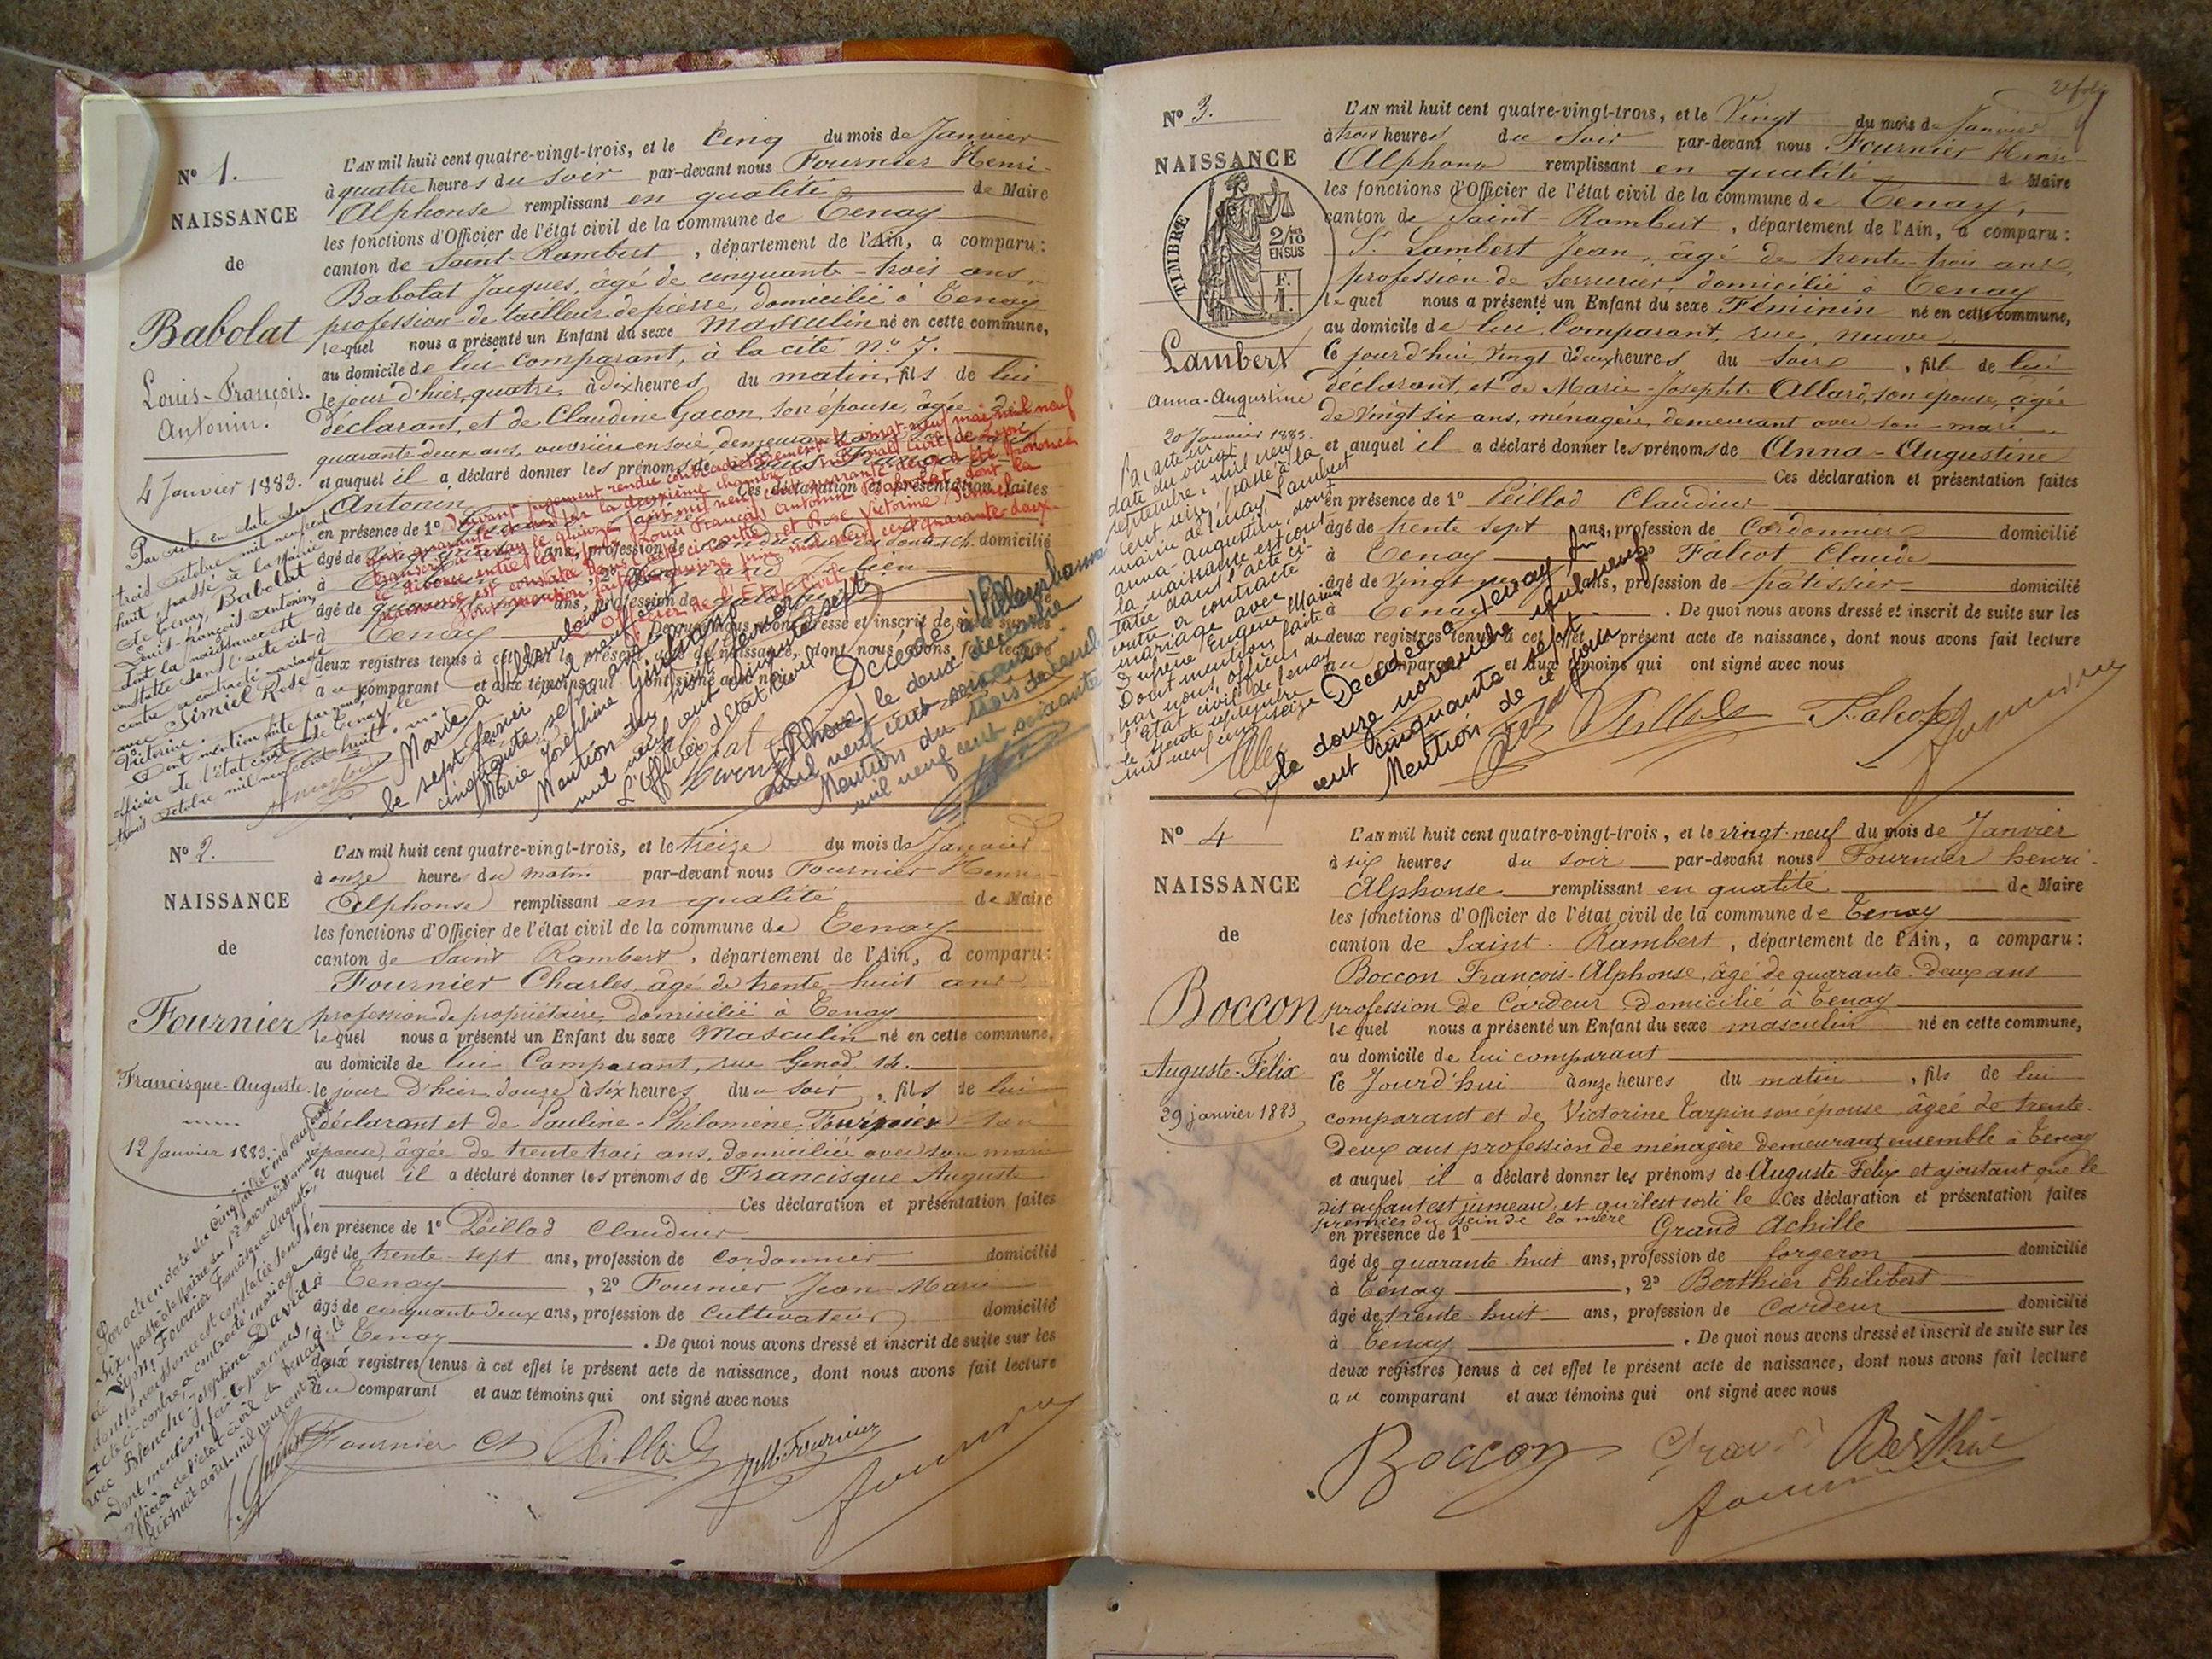 N° 1.
NAISSANCE
de
Babolat
Louis-François-
Antonin.
4 Janvier 1883.
L'AN mil huit cent quatre-vingt-trois, et le Cinq du mois de Janvier
à quatre heures du soir par-devant nous Fournier Henri-
Alphonse remplissant en qualité de Maire
les fonctions d'Officier de l'état civil de la commune de Tenay
canton de Saint-Rambert, département de l'Ain, a comparu:
Babolat Jacques, âgé de cinquante-trois ans,
profession de tailleur de pierre, domicilié à Tenay
lequel nous a présenté un Enfant du sexe masculin né en cette commune,
au domicile de lui comparant, à la cité N° 7.
le jour d'hier quatre, à dix heures du matin, fils de lui
déclarant, et de Claudine Gacon, son épouse, âgée de
quarante deux ans, ouvrière en soie, demeurant
et auquel il a déclaré donner les prénoms de Louis François
Antonin Ces déclaration et présentation faites
en présence de 1°
âgé de ans, profession de domicilié
à , 2° Julien
âgé de ans, profession de
à Tenay De quoi nous avons dressé et inscrit de suite sur les
deux registres tenus à cet effet le présent acte de naissance, dont nous avons fait lecture
au comparant et aux témoins qui ont signé avec nous
Par acte en date du
trois octobre mil neuf cent
huit, passé à la Mairie
de Tenay, Babolat
Louis-François-Antonin,
dont la naissance est
constatée dans l'acte ci-
contre a contracté mariage
avec Simiel Rose
Victorine.
Dont mention faite par nous,
officier de l'état civil de Tenay le
trois octobre mil neuf cent huit.
jugement rendu contradictoirement le vingt-neuf mai mil neuf
cent quarante et par la deuxième chambre du tribunal civil de Lyon
transcrit à Tenay le quinze juin mil neuf cent quarante deux a été prononcé
le divorce entre Louis François Antonin Babolat dont la
naissance est constatée dans l'acte ci-contre et Rose Victorine Simiel
juin mil neuf cent quarante deux
L'Officier de l'Etat Civil
Marié à
le sept février mil neuf cent
cinquante sept avec
Marie Joséphine
Mention du huit février
mil neuf cent cinquante sept
L'Officier d'Etat Civil
Décédé à Villeurbanne
(Rhône) le deux décembre
mil neuf cent soixante
Mention du trois décembre
mil neuf cent soixante
N° 2.
NAISSANCE
de
Fournier
Francisque-Auguste
12 Janvier 1883.
L'AN mil huit cent quatre-vingt-trois, et le treize du mois de Janvier
à onze heures du matin par-devant nous Fournier Henri-
Alphonse remplissant en qualité de Maire
les fonctions d'Officier de l'état civil de la commune de Tenay
canton de Saint Rambert, département de l'Ain, a comparu:
Fournier Charles, âgé de trente-huit ans,
profession de propriétaire, domicilié à Tenay
lequel nous a présenté un Enfant du sexe Masculin né en cette commune,
au domicile de lui Comparant, rue Genod, 14.
le jour d'hier douze à six heures du soir, fils de lui
déclarant et de Pauline-Philomène Fournier son
épouse, âgée de trente trois ans, domiciliée avec son mari
et auquel il a déclaré donner les prénoms de Francisque Auguste
Ces déclaration et présentation faites
en présence de 1° Peillod Claudius
âgé de trente-sept ans, profession de cordonnier domicilié
à Tenay, 2° Fournier Jean-Marie
âgé de cinquante deux ans, profession de cultivateur domicilié
à Tenay. De quoi nous avons dressé et inscrit de suite sur les
deux registres tenus à cet effet le présent acte de naissance, dont nous avons fait lecture
au comparant et aux témoins qui ont signé avec nous
Par acte en date du cinq juillet mil neuf cent
six, passé à la Mairie du arrondissement
de Lyon, Fournier Francisque-Auguste,
dont la naissance est constatée dans l'
acte ci-contre, a contracté mariage
avec Blanche-Josephine Davids
Dont mention faite par nous,
officier de l'état civil de Tenay, le
dix-huit août mil neuf cent six
Fournier Ch Peillod JM Fournier
Fournier
N° 3.
NAISSANCE
TIMBRE
2/10
EN SUS
F.
1.
Lambert
Anna-Augustine
20 Janvier 1883.
L'AN mil huit cent quatre-vingt-trois, et le Vingt du mois de Janvier
à trois heures du soir par-devant nous Fournier Henri-
Alphonse remplissant en qualité de Maire
les fonctions d'Officier de l'état civil de la commune de Tenay,
canton de Saint-Rambert, département de l'Ain, a comparu:
Sr Lambert Jean, âgé de trente-trois ans,
profession de Serrurier, domicilié à Tenay
lequel nous a présenté un Enfant du sexe Féminin né en cette commune,
au domicile de lui Comparant, rue neuve
le jour d'hui Vingt à deux heures du soir, fille de lui
déclarant, et de Marie-Josephte Allard, son épouse, âgée
de vingt six ans, ménagère, demeurant avec son mari
et auquel il a déclaré donner les prénoms de Anna-Augustine
Ces déclaration et présentation faites
en présence de 1° Peillod Claudius
âgé de trente sept ans, profession de Cordonnier domicilié
à Tenay 2° Falcot Claude
âgé de vingt neuf ans, profession de pâtissier domicilié
à Tenay. De quoi nous avons dressé et inscrit de suite sur les
deux registres tenus à cet effet le présent acte de naissance, dont nous avons fait lecture
au comparant et aux témoins qui ont signé avec nous
Par acte en
date du vingt
septembre, mil neuf
cent seize, passé à la
mairie de Tenay, Lambert
anna-augustine, dont
la naissance est cons-
tatée dans l'acte ci-
contre a contracté
mariage avec
Dufrene Eugène Marius
Dont mention faite
par nous, officier de
l'état civil de Tenay
le trente septembre
mil neuf cent seize
Décédée à Tenay
le douze novembre mil neuf
cent cinquante sept
Mention de ce jour
Peillod Falcot
Fournier
N° 4
NAISSANCE
de
Boccon
Auguste-Félix
29 janvier 1883
L'AN mil huit cent quatre-vingt-trois, et le vingt-neuf du mois de Janvier
à six heures du soir par-devant nous Fournier henri-
Alphonse remplissant en qualité de Maire
les fonctions d'Officier de l'état civil de la commune de Tenay
canton de Saint-Rambert, département de l'Ain, a comparu:
Boccon François-Alphonse, âgé de quarante-deux ans
profession de Cardeur domicilié à Tenay
lequel nous a présenté un Enfant du sexe masculin né en cette commune,
au domicile de lui comparant
le Jourd'hui à onze heures du matin, fils de lui
comparant et de Victorine Tarpin son épouse, âgée de trente-
Deux ans profession de ménagère demeurant ensemble à Tenay
et auquel il a déclaré donner les prénoms de Auguste-Félix et ajoutant que le
dit enfant est jumeau, et qu'il est sorti le Ces déclaration et présentation faites
premier du sein de la mère
en présence de 1° Grand Achille
âgé de quarante huit ans, profession de forgeron domicilié
à Tenay, 2° Berthier Philibert
âgé de trente-huit ans, profession de Cardeur domicilié
à Tenay. De quoi nous avons dressé et inscrit de suite sur les
deux registres tenus à cet effet le présent acte de naissance, dont nous avons fait lecture
au comparant et aux témoins qui ont signé avec nous
Boccon Grand Berthier
Fournier